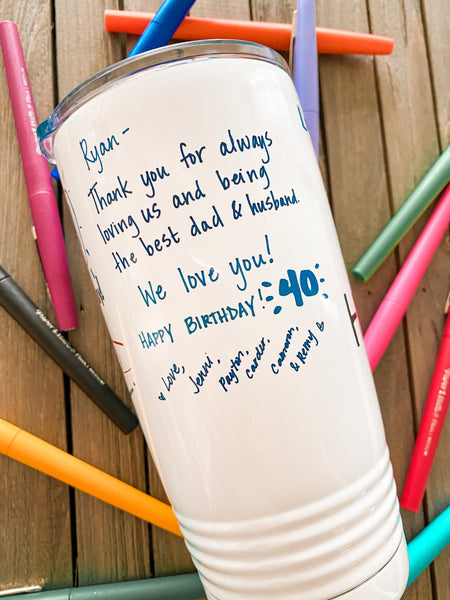 Ryan-
Thank you for always
loving us and being
the best dad & husband.
We love you!
HAPPY BIRTHDAY! 40
♥ Love,
Jenni,
Payton,
Carder,
Cameron,
& Remy ♥